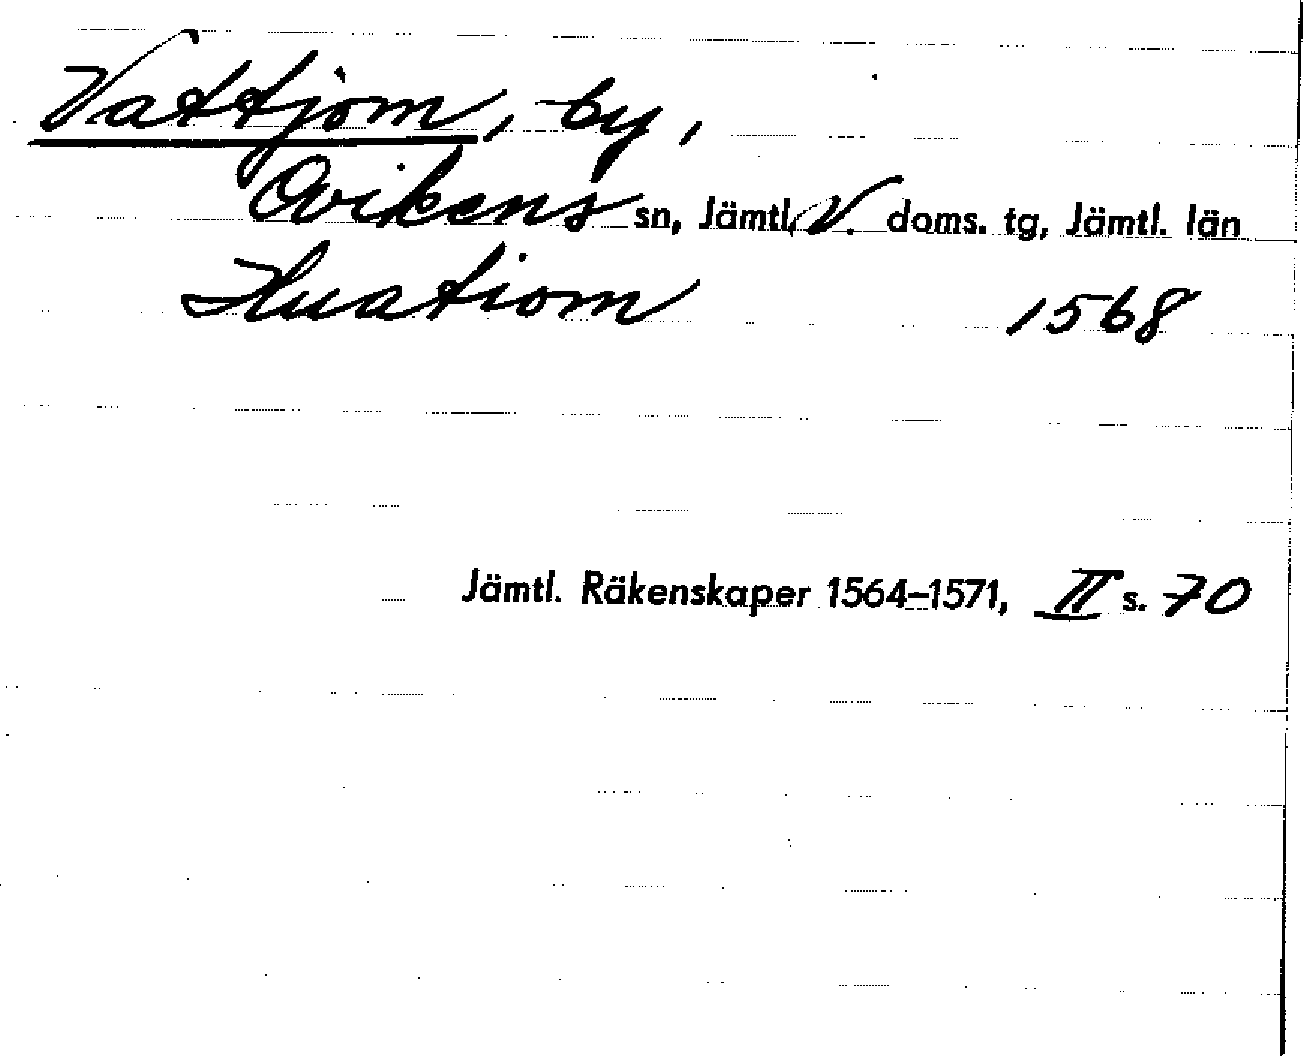 Vattjom, by,
Ovikens sn, Jämtl. V. doms. tg, Jämtl. län
Huatiom 1568
Jämtl. Räkenskaper 1564–1571, II s. 70